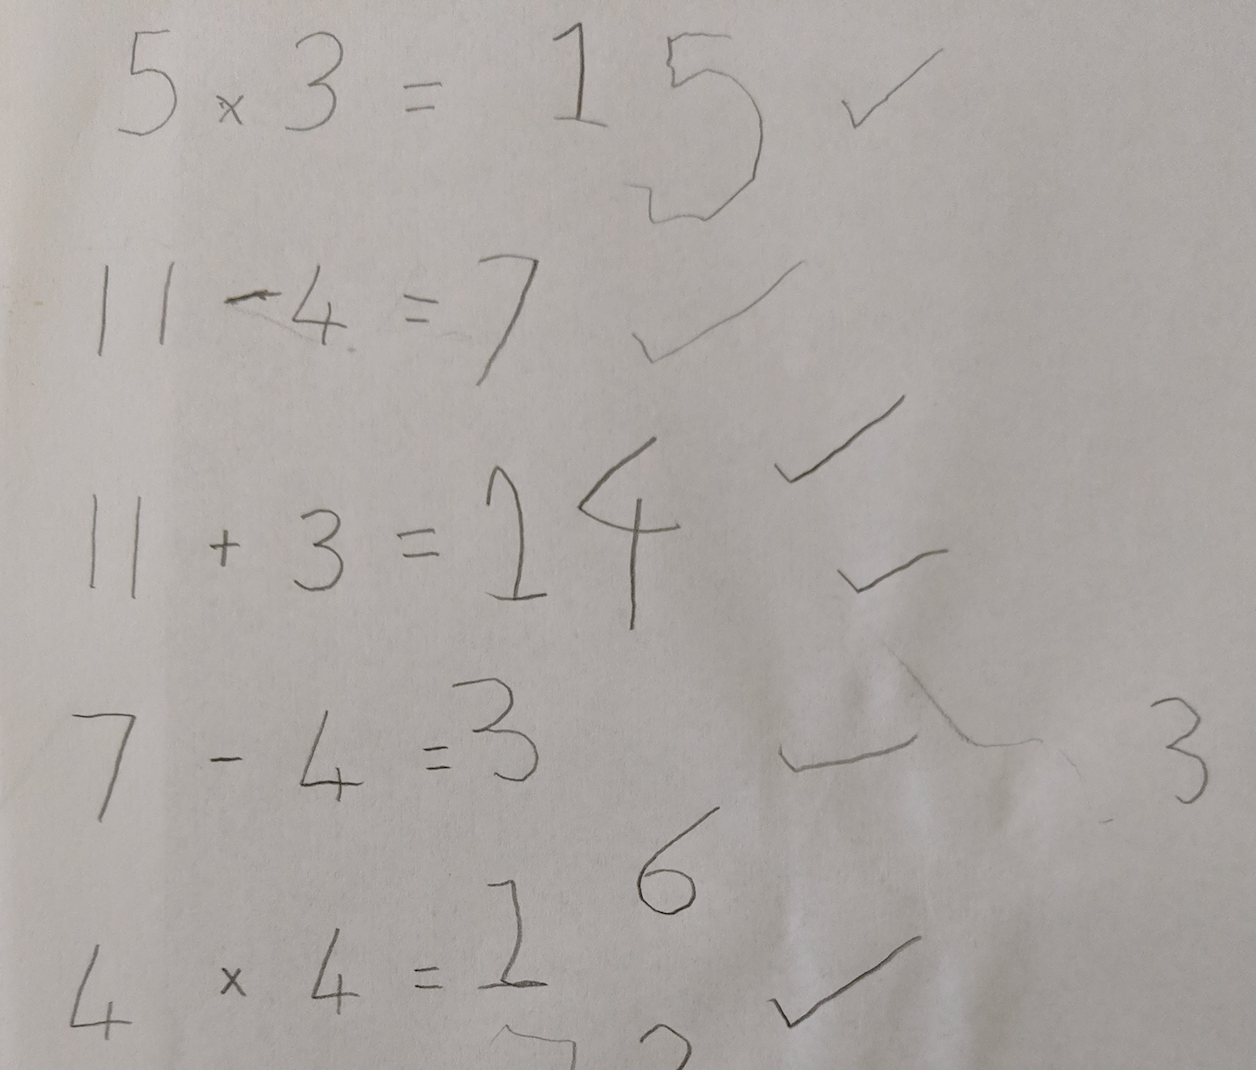 5 × 3 = 15 ✓
11 - 4 = 7 ✓
11 + 3 = 14 ✓
✓
7 - 4 = 3 ✓ 3
4 × 4 = 16 ✓